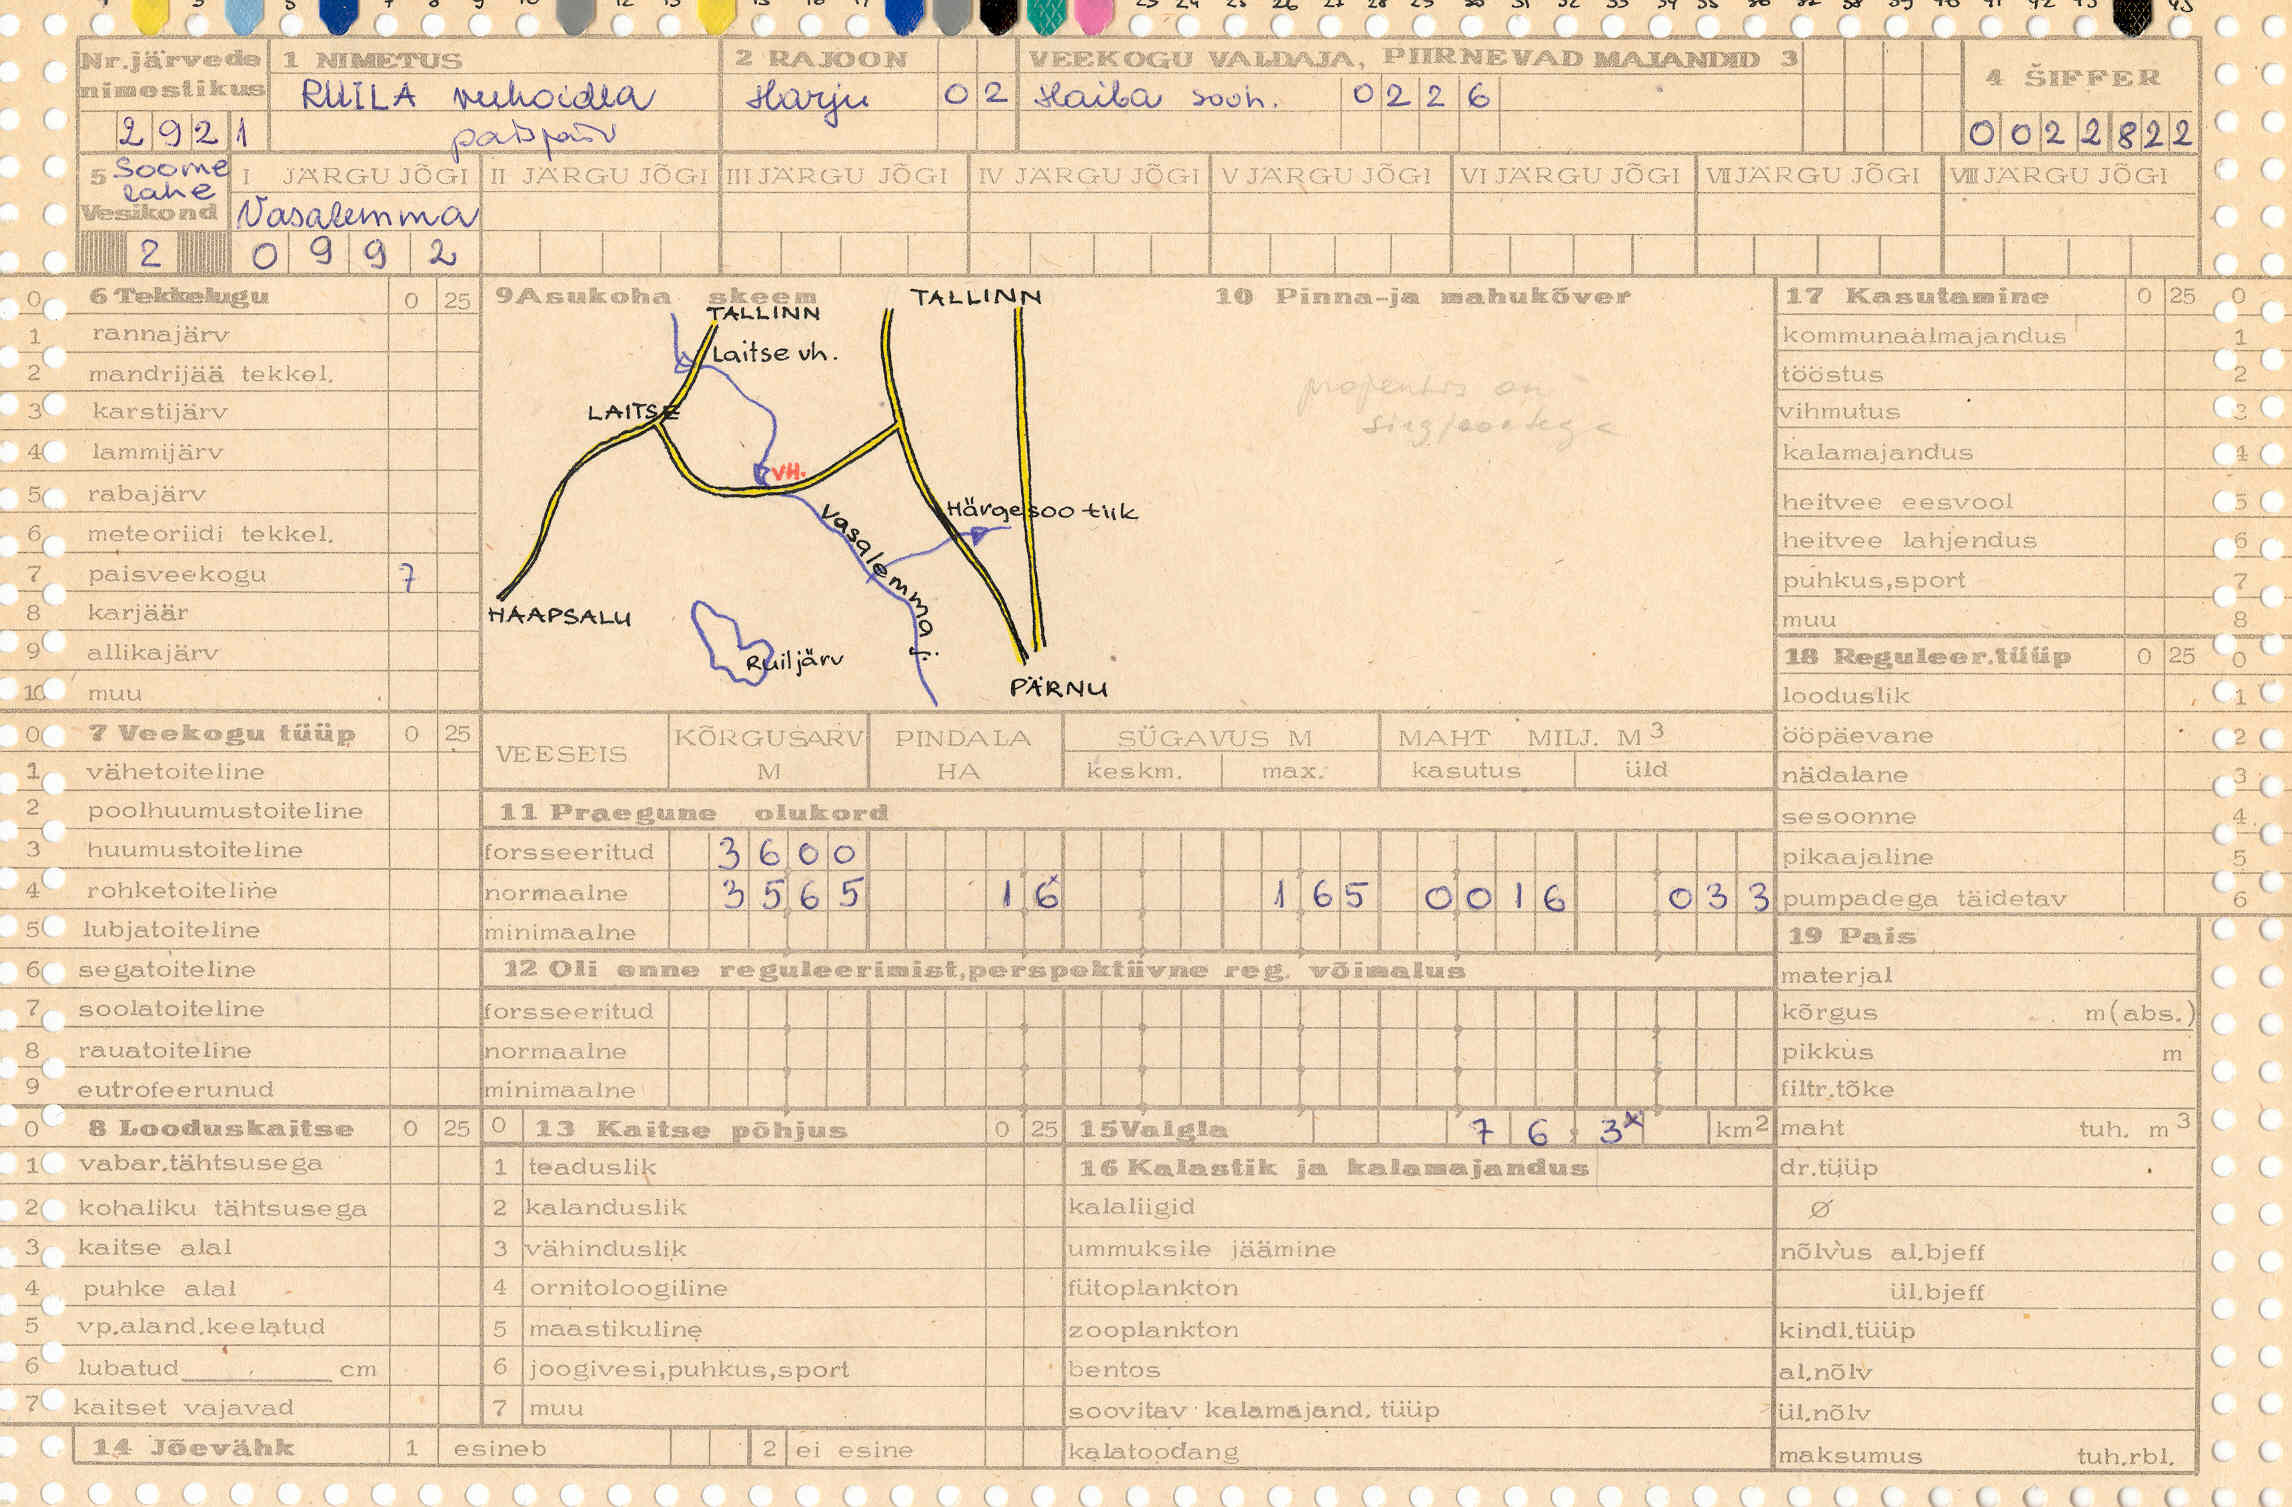 Nr.järvede
nimestikus
2921
1 NIMETUS
RUILA veehoidla
paisjärv
2 RAJOON
Harju 02
VEEKOGU VALDAJA, PIIRNEVAD MAJANDID 3
Haiba sovh. 0226
4 ŠIFFER
0022822
5 Soome
lahe
Vesikond
2
I JÄRGU JÕGI
Vasalemma
0992
II JÄRGU JÕGI
III JÄRGU JÕGI
IV JÄRGU JÕGI
V JÄRGU JÕGI
VI JÄRGU JÕGI
VII JÄRGU JÕGI
VIII JÄRGU JÕGI
0 6 Tekkelugu 0 25
1 rannajärv
2 mandrijää tekkel.
3 karstijärv
4 lammijärv
5 rabajärv
6 meteoriidi tekkel.
7 paisveekogu 7
8 karjäär
9 allikajärv
10 muu
9 Asukoha skeem
TALLINN
TALLINN
Laitse vh.
LAITSE
VH.
Härgesoo tiik
Vasalemma j.
HAAPSALU
Ruiljärv
PÄRNU
10 Pinna-ja mahukõver
projektis on
17 Kasutamine 0 25 0
kommunaalmajandus 1
tööstus 2
vihmutus 3
kalamajandus 4
heitvee eesvool 5
heitvee lahjendus 6
puhkus,sport 7
muu 8
18 Reguleer.tüüp 0 25 0
looduslik 1
ööpäevane 2
nädalane 3
sesoonne 4
pikaajaline 5
pumpadega täidetav 6
0 7 Veekogu tüüp 0 25
1 vähetoiteline
2 poolhuumustoiteline
3 huumustoiteline
4 rohketoiteline
5 lubjatoiteline
6 segatoiteline
7 soolatoiteline
8 rauatoiteline
9 eutrofeerunud
VEESEIS
KÕRGUSARV
M
PINDALA
HA
SÜGAVUS M
keskm. max.
MAHT MILJ. M3
kasutus üld
11 Praegune olukord
forsseeritud 3600
normaalne 3565 16 165 0016 033
minimaalne
12 Oli enne reguleerimist,perspektiivne reg. võimalus
forsseeritud
normaalne
minimaalne
19 Pais
materjal
kõrgus m(abs.)
pikkus m
filtr.tõke
maht tuh. m3
dr.tüüp
Ø
nõlvus al.bjeff
ül.bjeff
kindl.tüüp
al.nõlv
ül.nõlv
maksumus tuh.rbl.
0 8 Looduskaitse 0 25
1 vabar.tähtsusega
2 kohaliku tähtsusega
3 kaitse alal
4 puhke alal
5 vp.aland.keelatud
6 lubatud________cm
7 kaitset vajavad
0 13 Kaitse põhjus 0 25
1 teaduslik
2 kalanduslik
3 vähinduslik
4 ornitoloogiline
5 maastikuline
6 joogivesi,puhkus,sport
7 muu
15 Valgla 76,3x km2
16 Kalastik ja kalamajandus
kalaliigid
ummuksile jäämine
fütoplankton
zooplankton
bentos
soovitav kalamajand. tüüp
kalatoodang
14 Jõevähk 1 esineb 2 ei esine